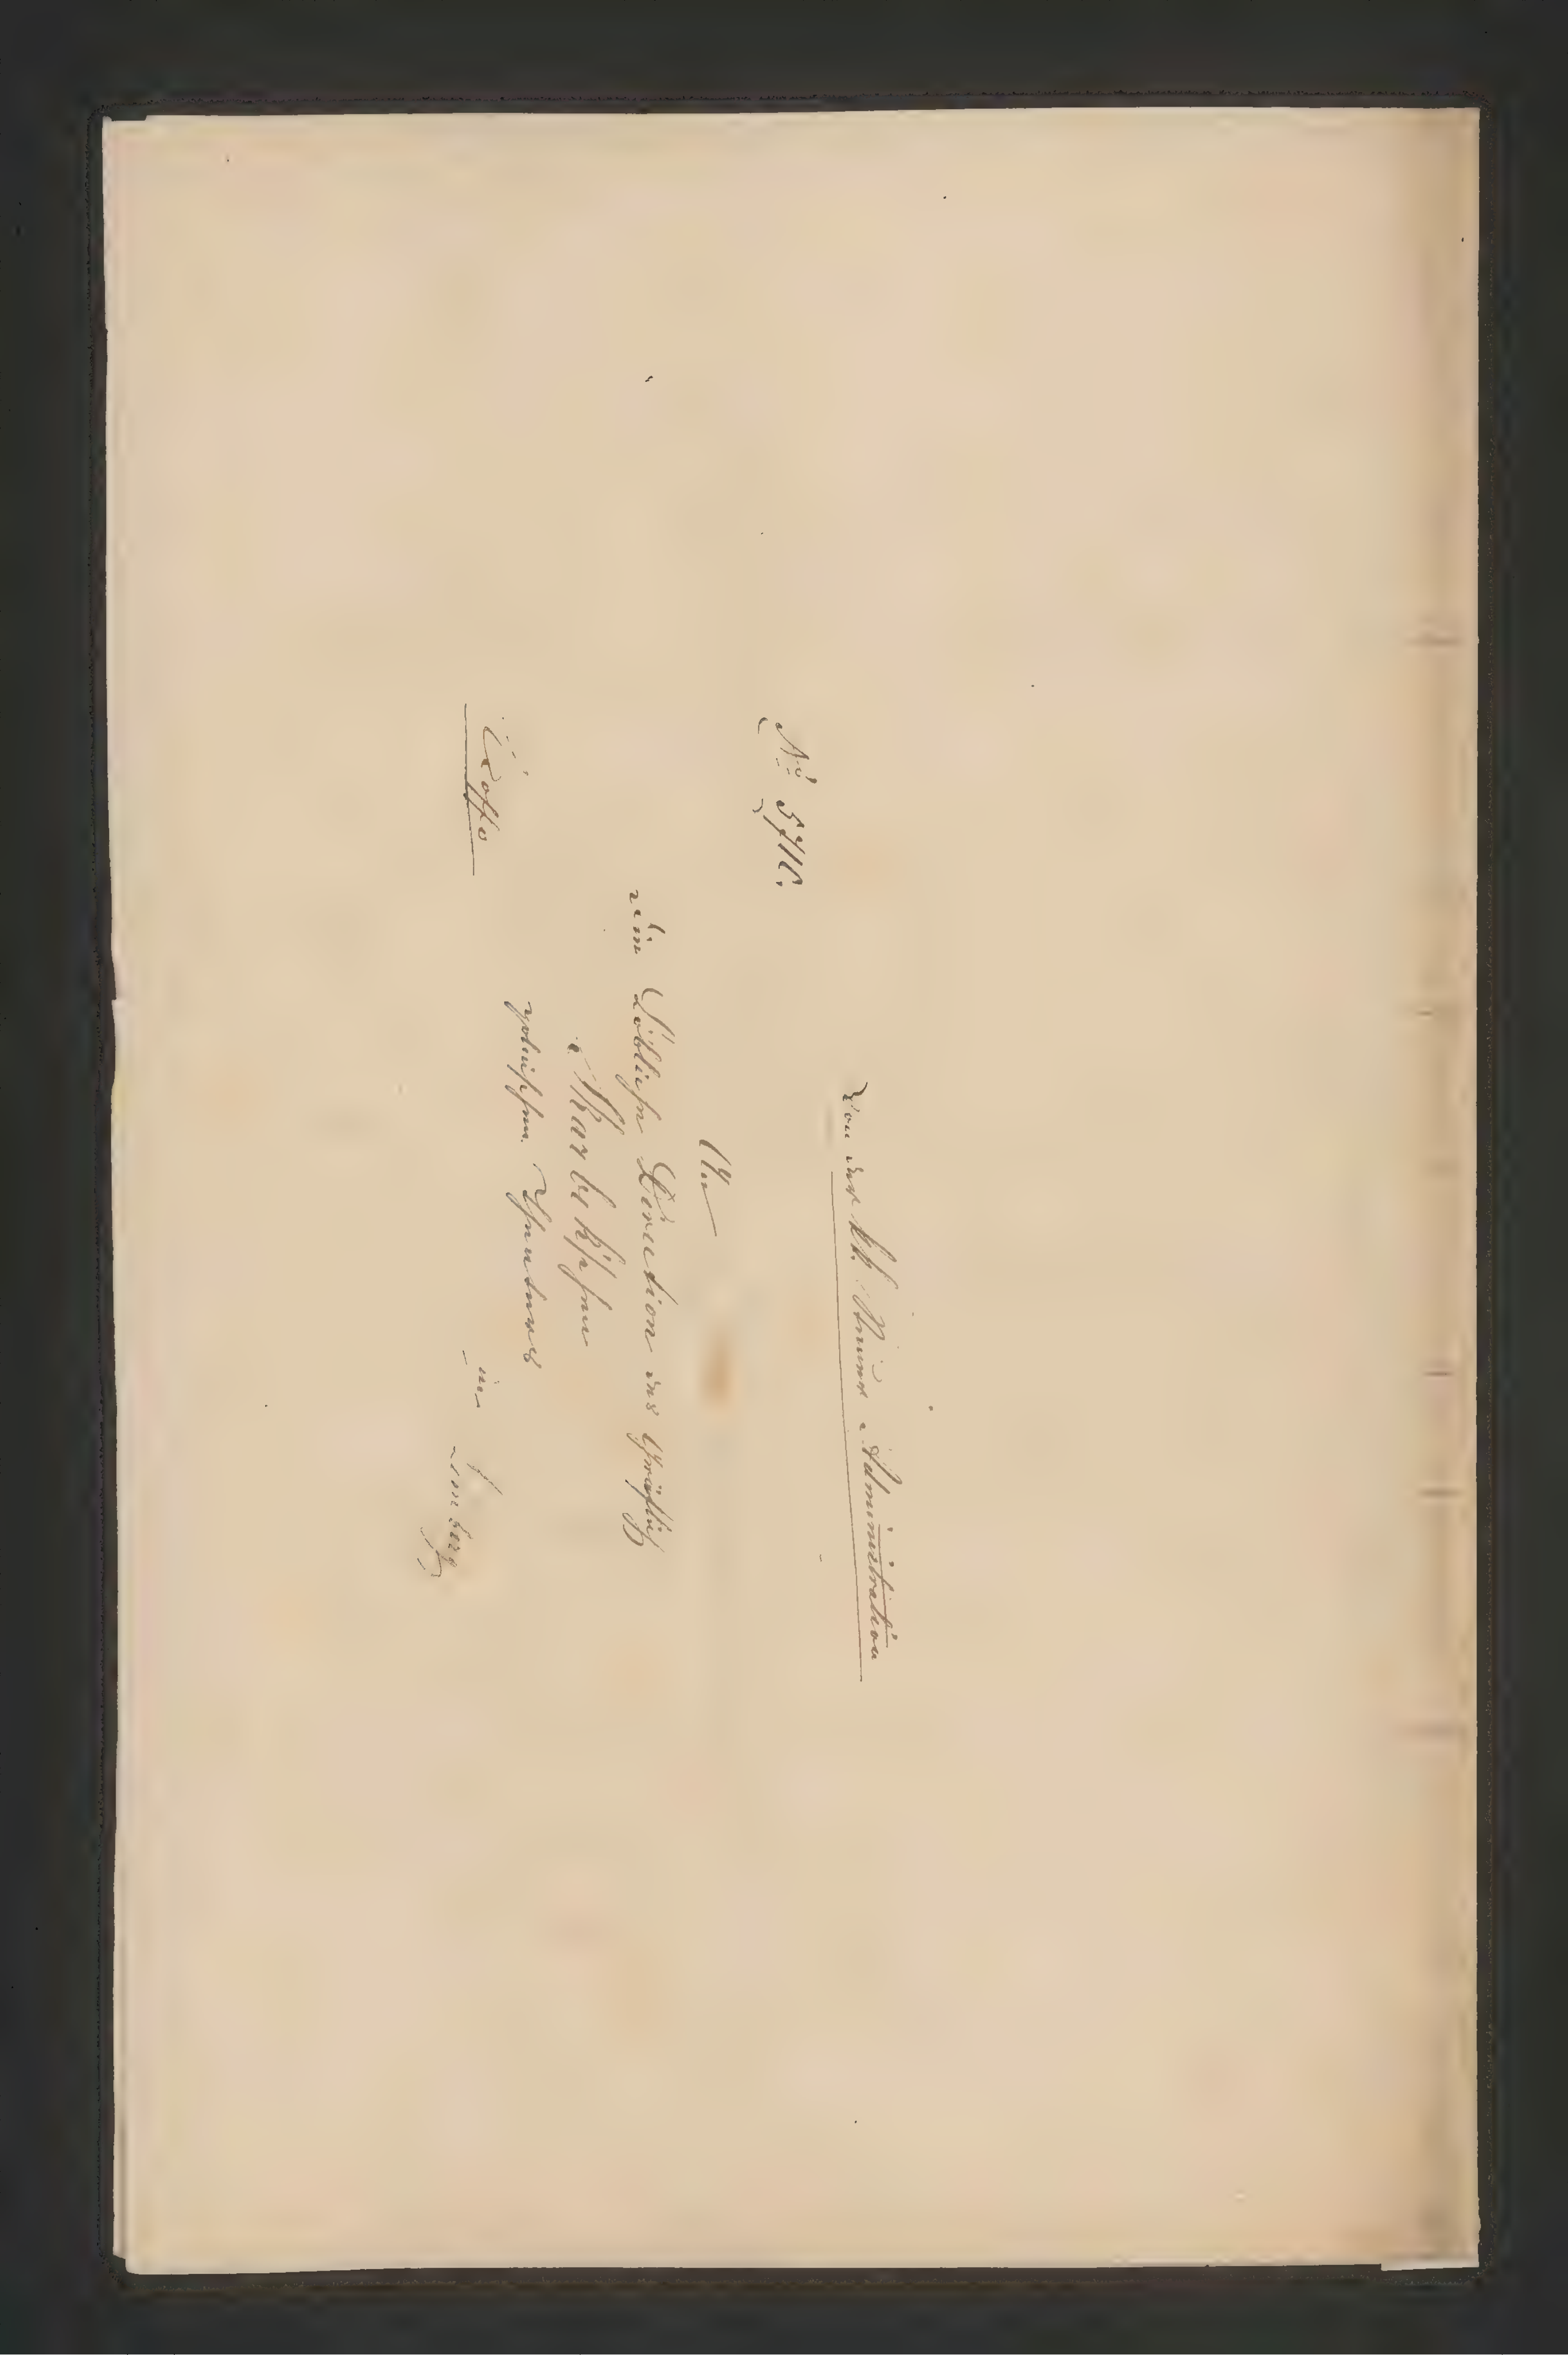 Von der k.k. Kaal Administration
No 5716.
An
die Löbliche Direction des Gräflich
Skarbekschen
polnischen Theaters
in
Lemberg
Ex offo